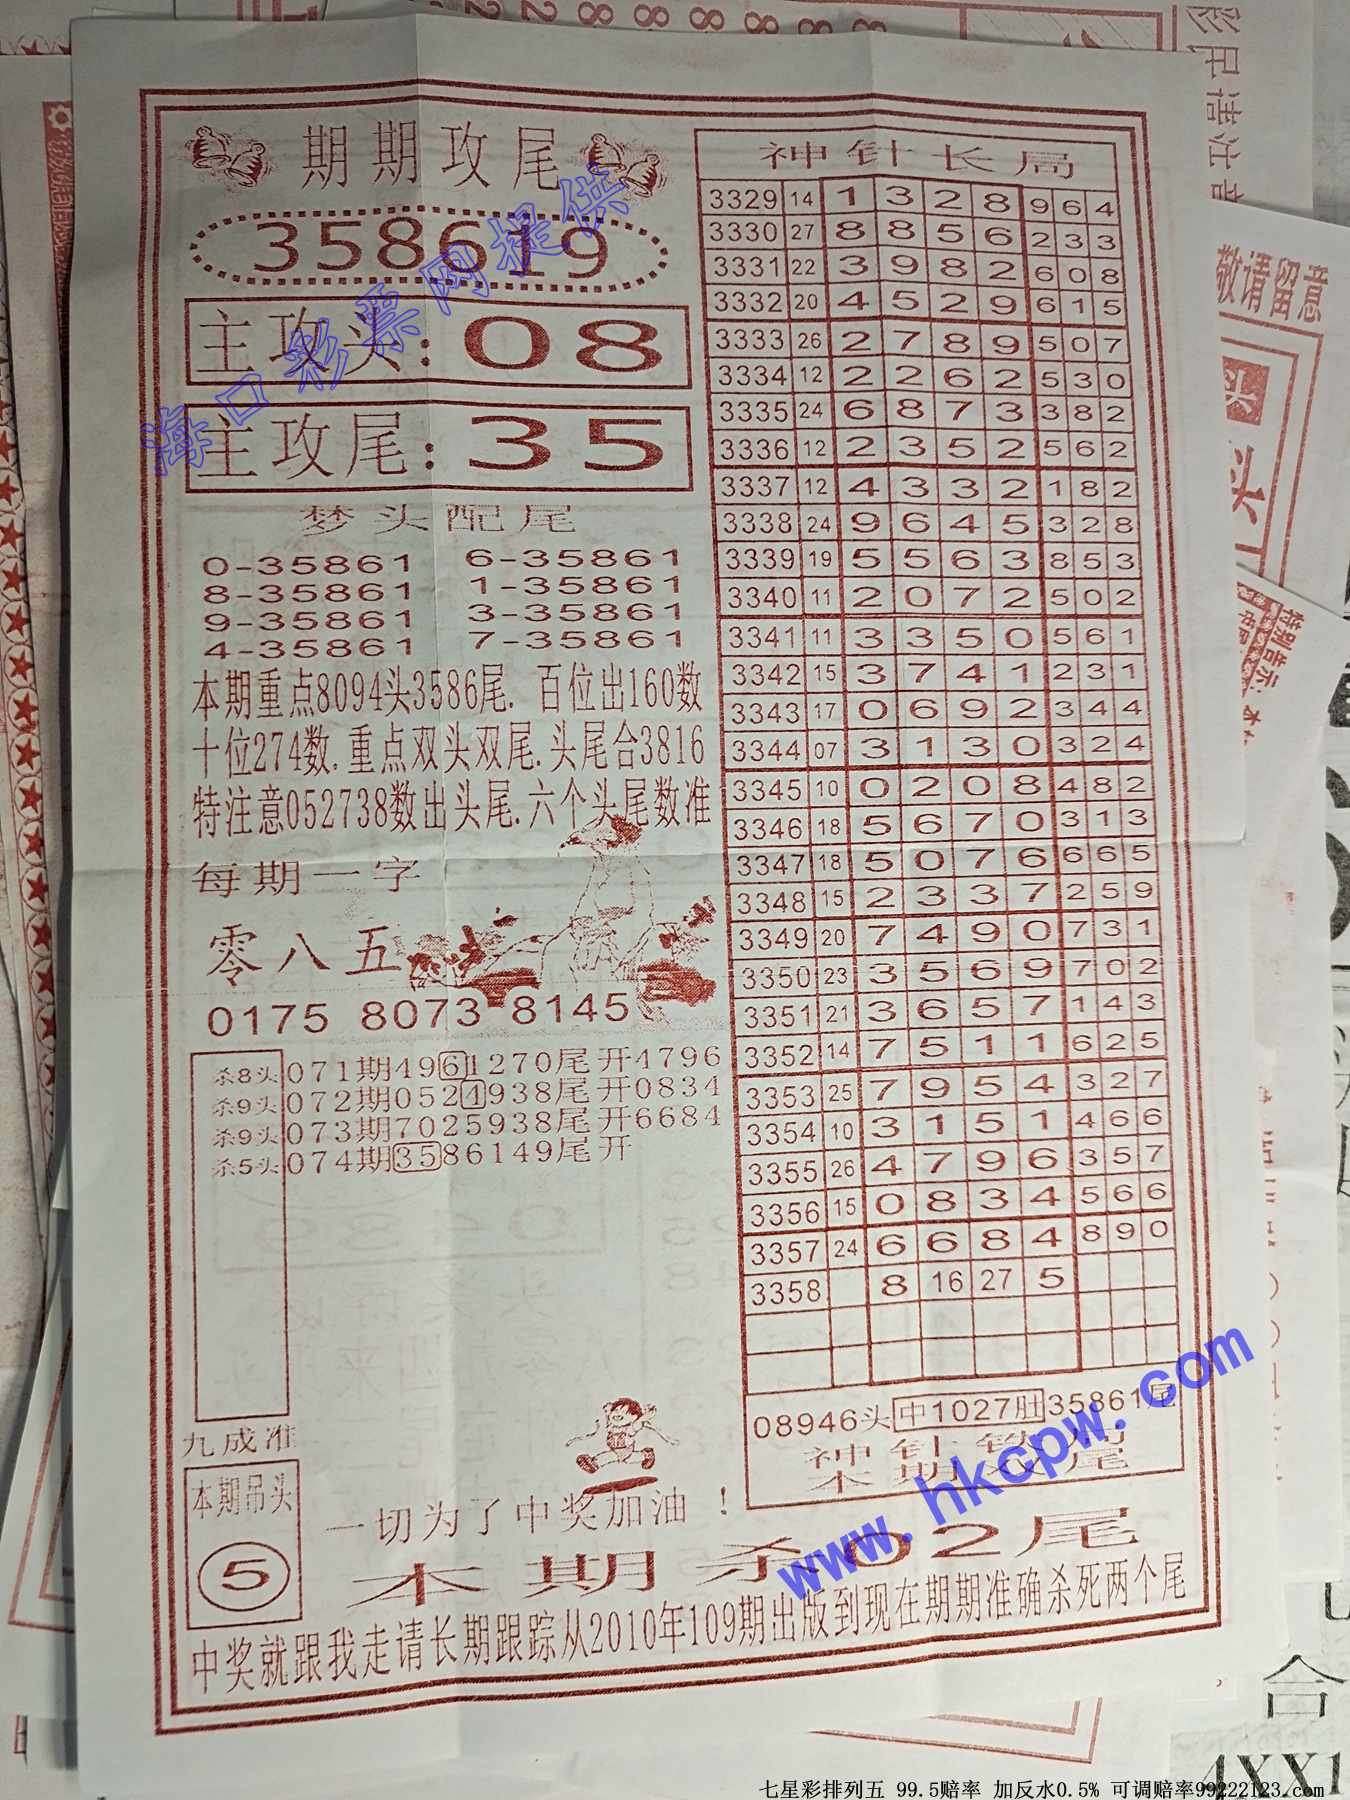 期期攻尾
358619
主攻头:08
主攻尾:35
梦头配尾
0-35861 6-35861
8-35861 1-35861
9-35861 3-35861
4-35861 7-35861
本期重点8094头3586尾. 百位出160数
十位274数.重点双头双尾.头尾合3816
特注意052738数出头尾.六个头尾数准
每期一字
零八五
0175 8073 8145
杀8头 071期4961270尾开4796
杀9头 072期0524938尾开0834
杀9头 073期7025938尾开6684
杀5头 074期3586149尾开
九成准
本期吊头
5
一切为了中奖加油！
神针长局
3329 14 1 3 2 8 9 6 4
3330 27 8 8 5 6 2 3 3
3331 22 3 9 8 2 6 0 8
3332 20 4 5 2 9 6 1 5
3333 26 2 7 8 9 5 0 7
3334 12 2 2 6 2 5 3 0
3335 24 6 8 7 3 3 8 2
3336 12 2 3 5 2 5 6 2
3337 12 4 3 3 2 1 8 2
3338 24 9 6 4 5 3 2 8
3339 19 5 5 6 3 8 5 3
3340 11 2 0 7 2 5 0 2
3341 11 3 3 5 0 5 6 1
3342 15 3 7 4 1 2 3 1
3343 17 0 6 9 2 3 4 4
3344 07 3 1 3 0 3 2 4
3345 10 0 2 0 8 4 8 2
3346 18 5 6 7 0 3 1 3
3347 18 5 0 7 6 6 6 5
3348 15 2 3 3 7 2 5 9
3349 20 7 4 9 0 7 3 1
3350 23 3 5 6 9 7 0 2
3351 21 3 6 5 7 1 4 3
3352 14 7 5 1 1 6 2 5
3353 25 7 9 5 4 3 2 7
3354 10 3 1 5 1 4 6 6
3355 26 4 7 9 6 3 5 7
3356 15 0 8 3 4 5 6 6
3357 24 6 6 8 4 8 9 0
3358 8 16 27 5
08946头中1027肚35861尾
神针铁局
本期双尾
本期杀02尾
中奖就跟我走请长期跟踪从2010年109期出版到现在期期准确杀死两个尾
海口彩票网提供
www.hkcpw.com
敬请留意
头
头
特别告示:
合
4XX1
七星彩排列五 99.5赔率 加反水0.5% 可调赔率99222123.com